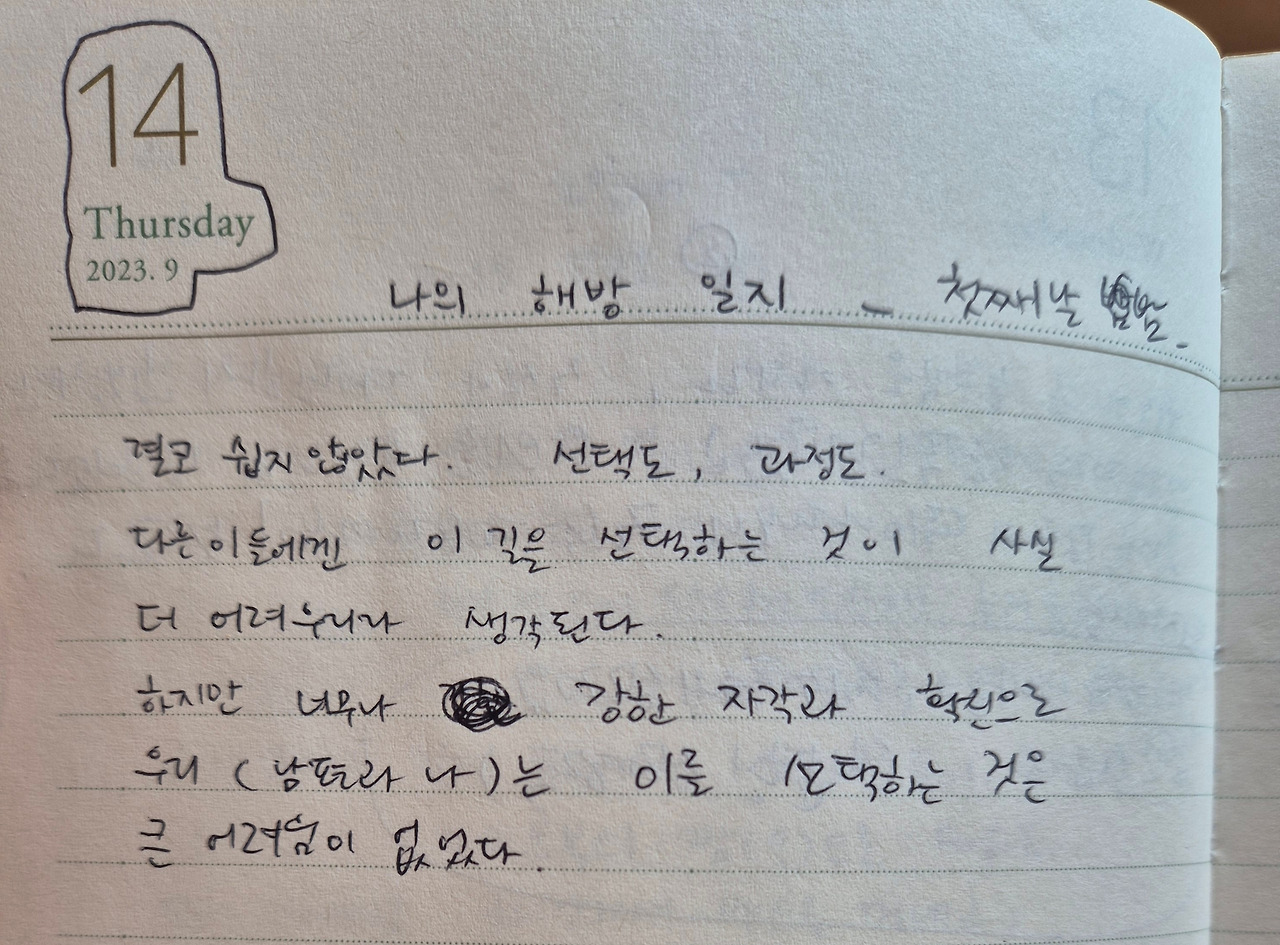 14
Thursday
2023. 9
나의 해방 일지 - 첫째날 밤.
결코 쉽지 않았다. 선택도, 과정도.
다른이들에겐 이 길을 선택하는 것이 사실
더 어려우리라 생각된다.
하지만 너무나 강한 자각과 확신으로
우리 (남편과 나)는 이를 선택하는 것은
큰 어려움이 없었다.